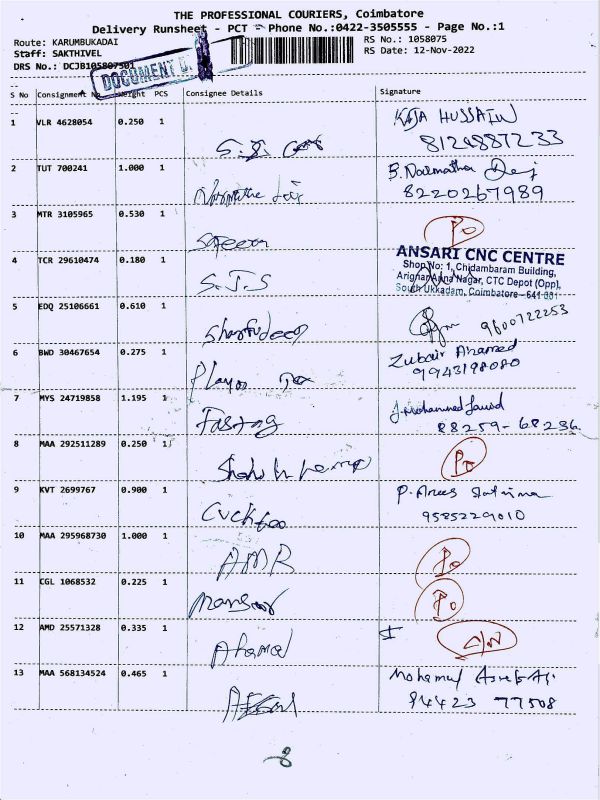 THE PROFESSIONAL COURIERS, Coimbatore
Delivery Runsheet - PCT - Phone No.:0422-3505555 - Page No.:1
Route: KARUMBUKADAI
RS No.: 1058075
Staff: SAKTHIVEL
RS Date: 12-Nov-2022
DRS No.: DCJB105807501
DOCUMENT
S No Consignment No Weight PCS Consignee Details Signature
1 VLR 4628054 0.250 1 KAJA HUSSAIN
8124887233
2 TUT 700241 1.000 1
8220267989
3 MTR 3105965 0.530 1 Safeer Po
4 TCR 29610474 0.180 1 S.J.S
ANSARI CNC CENTRE
Shop No: 1, Chidambaram Building,
Arignar Anna Nagar, CTC Depot (Opp),
South Ukkadam, Coimbatore - 641 001
5 EDQ 25106661 0.610 1 Sharfudeen 9600722253
6 BWD 30467654 0.275 1 Zubair Ahamed
9943198080
7 MYS 24719858 1.195 1 Fastag J. Mohammed
88259-68236
8 MAA 292511289 0.250 1 Po
9 KVT 2699767 0.900 1 P. Anees Fatima
9585229010
10 MAA 295968730 1.000 1 AMR Po
11 CGL 1068532 0.225 1 Mansoor Po
12 AMD 25571328 0.335 1 Ahamed
13 MAA 568134524 0.465 1 Mohamed
94423 77508
8